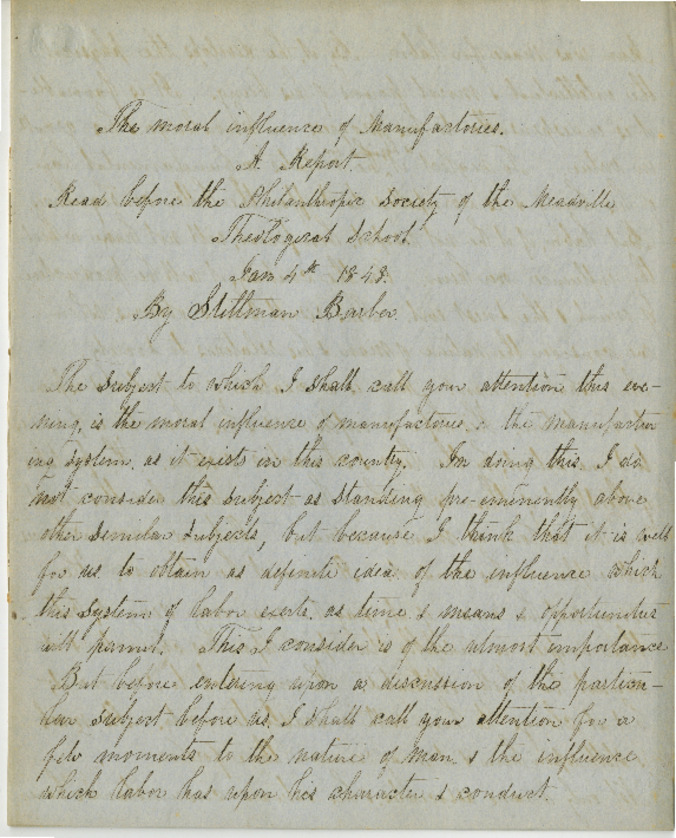 The moral influence of Manufactories.
A. Report.
Read before the Philanthropic Society of the Meadville
Theological School.
Jan 4th 1848.
By Stillman Barber.
The subject to which I shall call your attention this eve-
ning, is the moral influence of manufactories, & the manufactur
ing system, as it exists in this country. In doing this I do
not consider this subject as standing pre-eminently above
other similar subjects, but because I think that it is well
for us to obtain as definite idea of the influence which
this system of labor exerts, as time & means & opportunities
will permit. This I consider is of the utmost importance
But before entering upon a discussion of the particu-
lar subject before us, I shall call your attention for a
few moments to the nature of man & the influence
which labor has upon his character & conduct.